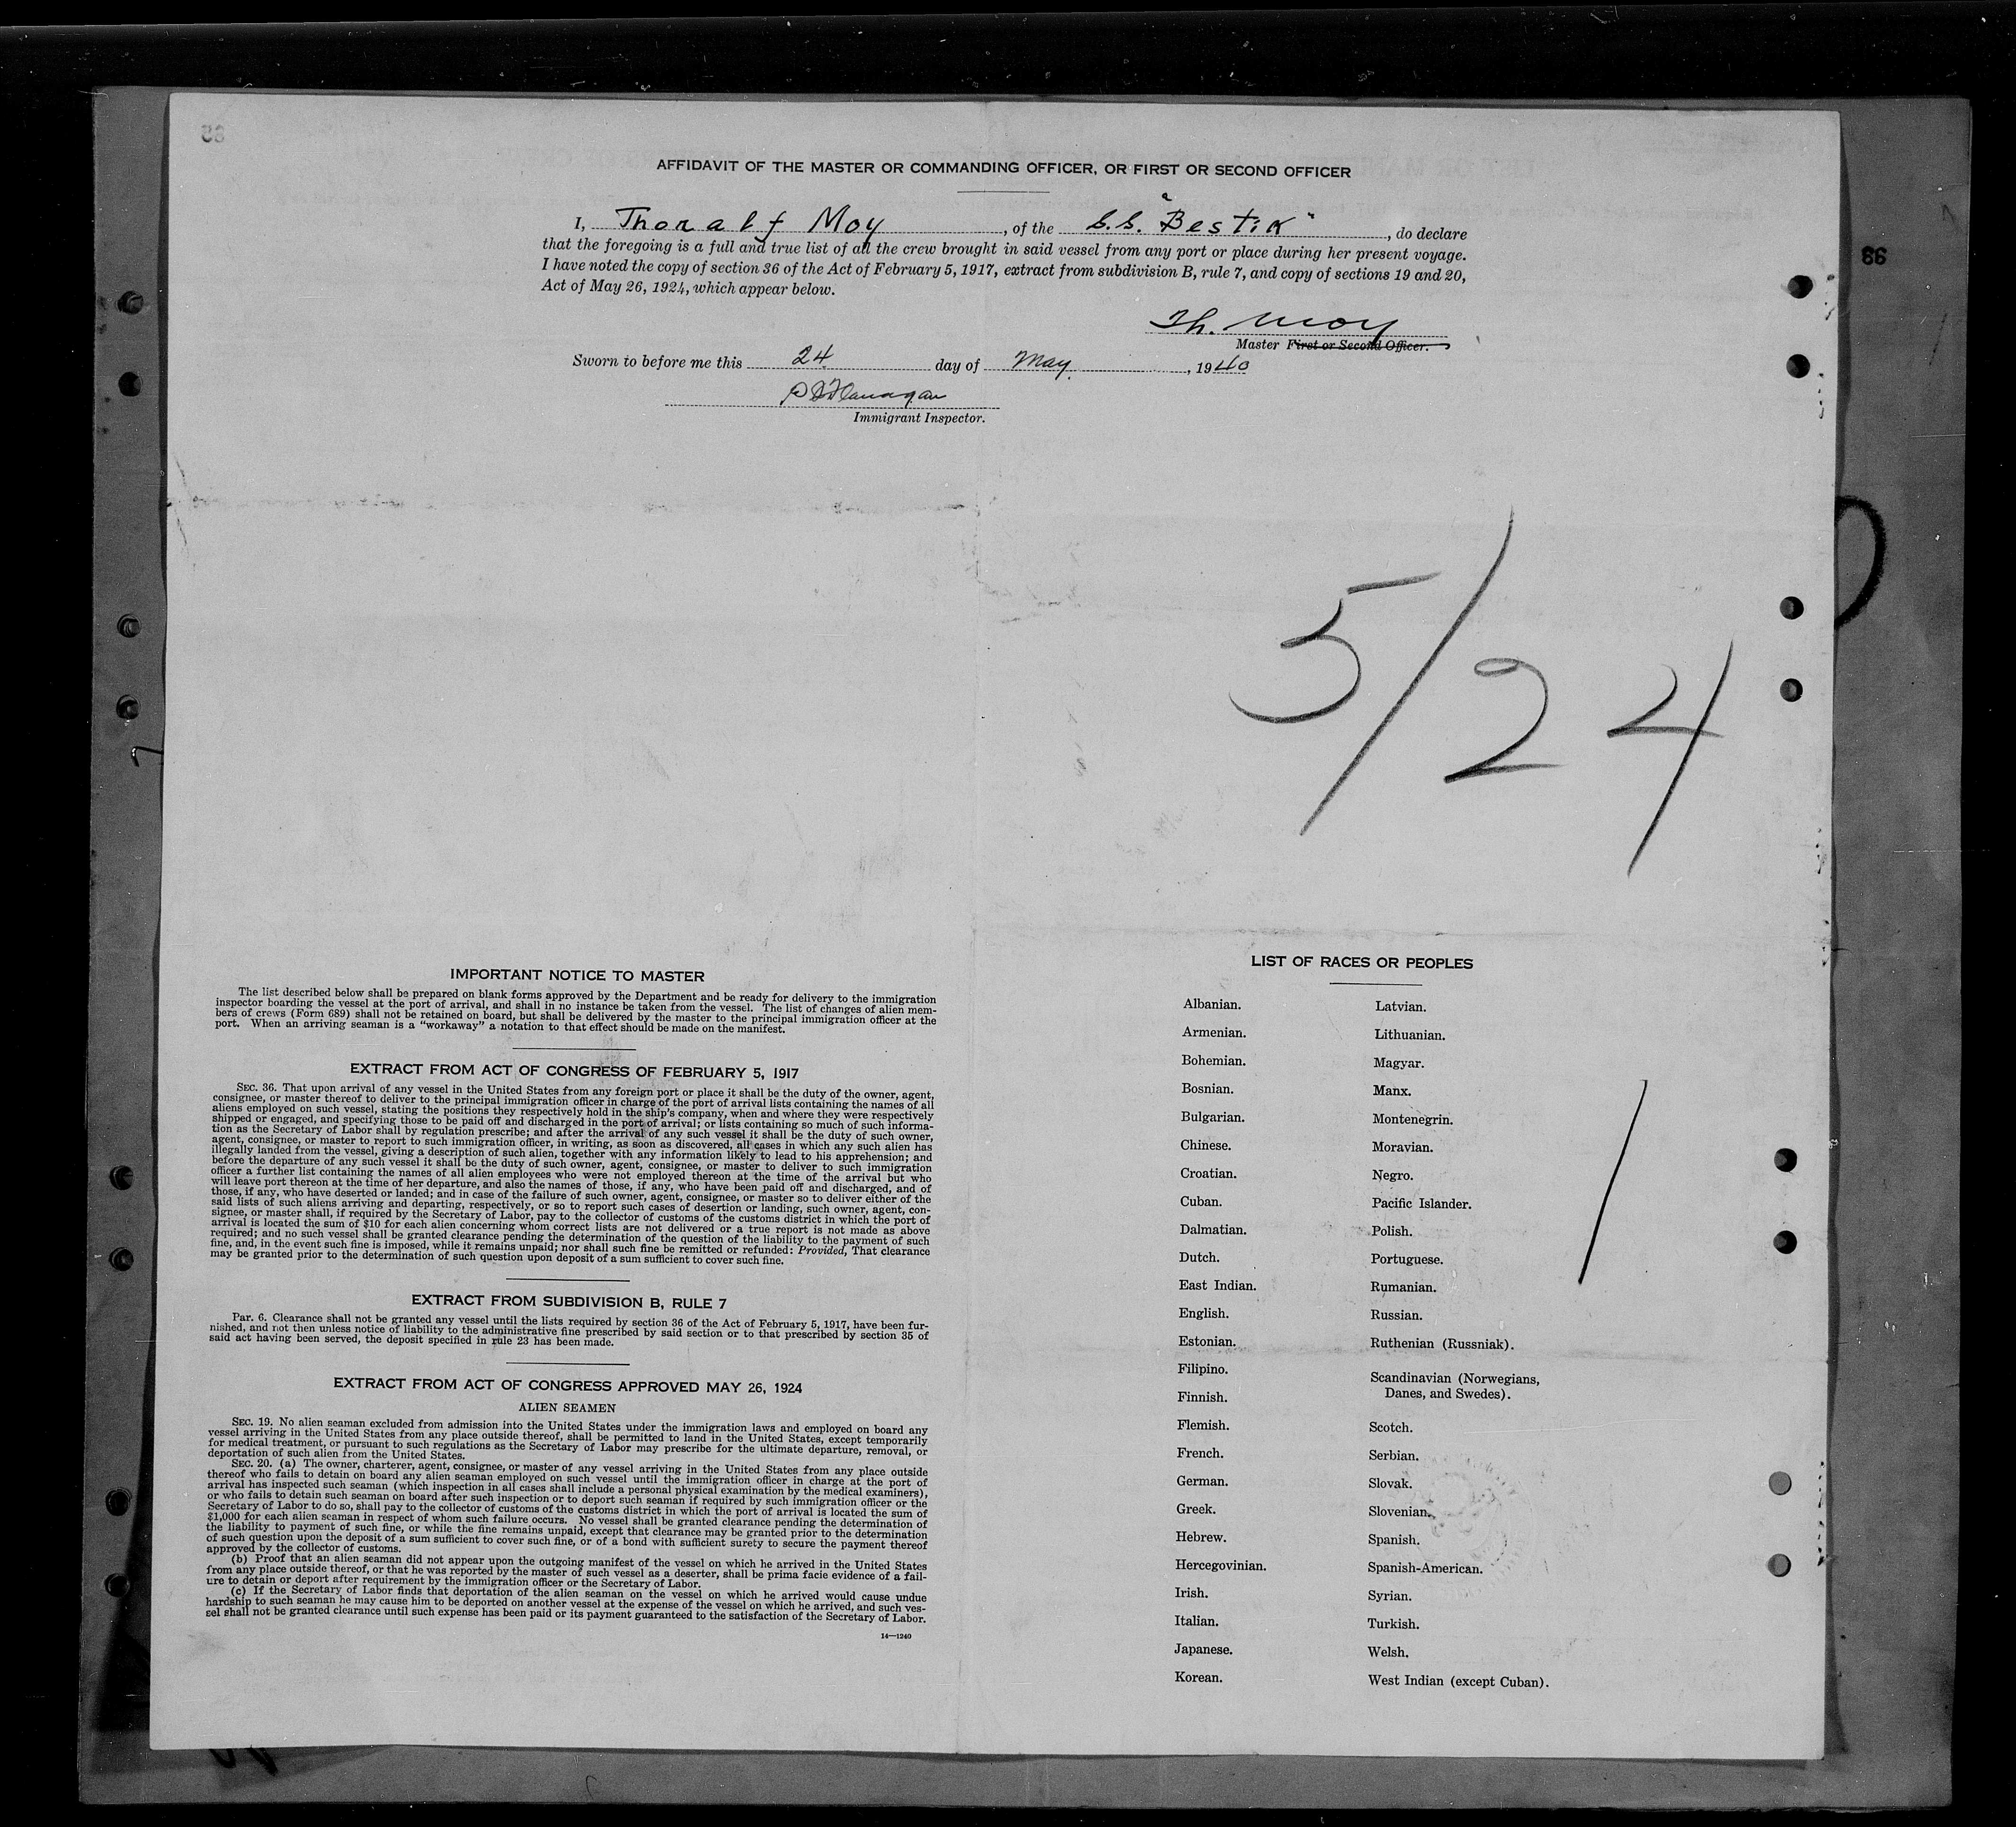 AFFIDAVIT OF THE MASTER OR COMMANDING OFFICER, OR FIRST OR SECOND OFFICER
I, Thoralf Moy, of the S.S. "Bestik", do declare
that the foregoing is a full and true list of all the crew brought in said vessel from any port or place during her present voyage.
I have noted the copy of section 36 of the Act of February 5, 1917, extract from subdivision B, rule 7, and copy of sections 19 and 20,
Act of May 26, 1924, which appear below.
Th. Moy
Master First or Second Officer.
Sworn to before me this 24 day of May, 1940
Flanagan
Immigrant Inspector.
5/24
IMPORTANT NOTICE TO MASTER
The list described below shall be prepared on blank forms approved by the Department and be ready for delivery to the immigration
inspector boarding the vessel at the port of arrival, and shall in no instance be taken from the vessel. The list of changes of alien mem-
bers of crews (Form 689) shall not be retained on board, but shall be delivered by the master to the principal immigration officer at the
port. When an arriving seaman is a "workaway" a notation to that effect should be made on the manifest.
EXTRACT FROM ACT OF CONGRESS OF FEBRUARY 5, 1917
SEC. 36. That upon arrival of any vessel in the United States from any foreign port or place it shall be the duty of the owner, agent,
consignee, or master thereof to deliver to the principal immigration officer in charge of the port of arrival lists containing the names of all
aliens employed on such vessel, stating the positions they respectively hold in the ship's company, when and where they were respectively
shipped or engaged, and specifying those to be paid off and discharged in the port of arrival; or lists containing so much of such informa-
tion as the Secretary of Labor shall by regulation prescribe; and after the arrival of any such vessel it shall be the duty of such owner,
agent, consignee, or master to report to such immigration officer, in writing, as soon as discovered, all cases in which any such alien has
illegally landed from the vessel, giving a description of such alien, together with any information likely to lead to his apprehension; and
before the departure of any such vessel it shall be the duty of such owner, agent, consignee, or master to deliver to such immigration
officer a further list containing the names of all alien employees who were not employed thereon at the time of the arrival but who
will leave port thereon at the time of her departure, and also the names of those, if any, who have been paid off and discharged, and of
those, if any, who have deserted or landed; and in case of the failure of such owner, agent, consignee, or master so to deliver either of the
said lists of such aliens arriving and departing, respectively, or so to report such cases of desertion or landing, such owner, agent, con-
signee, or master shall, if required by the Secretary of Labor, pay to the collector of customs of the customs district in which the port of
arrival is located the sum of $10 for each alien concerning whom correct lists are not delivered or a true report is not made as above
required; and no such vessel shall be granted clearance pending the determination of the question of the liability to the payment of such
fine, and, in the event such fine is imposed, while it remains unpaid; nor shall such fine be remitted or refunded: Provided, That clearance
may be granted prior to the determination of such question upon deposit of a sum sufficient to cover such fine.
EXTRACT FROM SUBDIVISION B, RULE 7
Par. 6. Clearance shall not be granted any vessel until the lists required by section 36 of the Act of February 5, 1917, have been fur-
nished, and not then unless notice of liability to the administrative fine prescribed by said section or to that prescribed by section 35 of
said act having been served, the deposit specified in rule 23 has been made.
EXTRACT FROM ACT OF CONGRESS APPROVED MAY 26, 1924
ALIEN SEAMEN
SEC. 19. No alien seaman excluded from admission into the United States under the immigration laws and employed on board any
vessel arriving in the United States from any place outside thereof, shall be permitted to land in the United States, except temporarily
for medical treatment, or pursuant to such regulations as the Secretary of Labor may prescribe for the ultimate departure, removal, or
deportation of such alien from the United States.
SEC. 20. (a) The owner, charterer, agent, consignee, or master of any vessel arriving in the United States from any place outside
thereof who fails to detain on board any alien seaman employed on such vessel until the immigration officer in charge at the port of
arrival has inspected such seaman (which inspection in all cases shall include a personal physical examination by the medical examiners),
or who fails to detain such seaman on board after such inspection or to deport such seaman if required by such immigration officer or the
Secretary of Labor to do so, shall pay to the collector of customs of the customs district in which the port of arrival is located the sum of
$1,000 for each alien seaman in respect of whom such failure occurs. No vessel shall be granted clearance pending the determination of
the liability to payment of such fine, or while the fine remains unpaid, except that clearance may be granted prior to the determination
of such question upon the deposit of a sum sufficient to cover such fine, or of a bond with sufficient surety to secure the payment thereof
approved by the collector of customs.
(b) Proof that an alien seaman did not appear upon the outgoing manifest of the vessel on which he arrived in the United States
from any place outside thereof, or that he was reported by the master of such vessel as a deserter, shall be prima facie evidence of a fail-
ure to detain or deport after requirement by the immigration officer or the Secretary of Labor.
(c) If the Secretary of Labor finds that deportation of the alien seaman on the vessel on which he arrived would cause undue
hardship to such seaman he may cause him to be deported on another vessel at the expense of the vessel on which he arrived, and such ves-
sel shall not be granted clearance until such expense has been paid or its payment guaranteed to the satisfaction of the Secretary of Labor.
14—1240
LIST OF RACES OR PEOPLES
Albanian.
Armenian.
Bohemian.
Bosnian.
Bulgarian.
Chinese.
Croatian.
Cuban.
Dalmatian.
Dutch.
East Indian.
English.
Estonian.
Filipino.
Finnish.
Flemish.
French.
German.
Greek.
Hebrew.
Hercegovinian.
Irish.
Italian.
Japanese.
Korean.
Latvian.
Lithuanian.
Magyar.
Manx.
Montenegrin.
Moravian.
Negro.
Pacific Islander.
Polish.
Portuguese.
Rumanian.
Russian.
Ruthenian (Russniak).
Scandinavian (Norwegians,
Danes, and Swedes).
Scotch.
Serbian.
Slovak.
Slovenian.
Spanish.
Spanish-American.
Syrian.
Turkish.
Welsh.
West Indian (except Cuban).